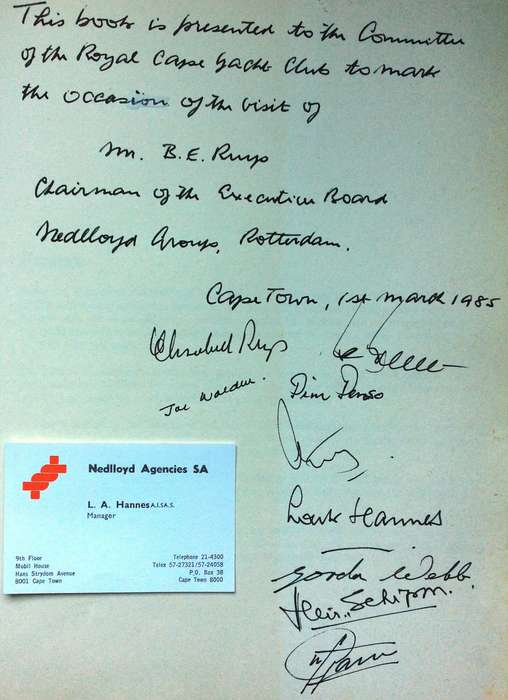 This book is presented to the Committee
of the Royal Cape Yacht Club to mark
the occasion of the visit of
Mr. B.E. Ruys
Chairman of the Executive Board
Nedlloyd Groups, Rotterdam.
Cape Town, 1st March 1985
Elisabeth Ruys
Joe
Pim
Louk Hannes
Gordon Webb
Nedlloyd Agencies SA
L. A. Hannes A.I.SA.S.
Manager
9th Floor
Mobil House
Hans Strydom Avenue
8001 Cape Town
Telephone 21-4300
Telex 57-27321/57-24058
P.O. Box 38
Cape Town 8000